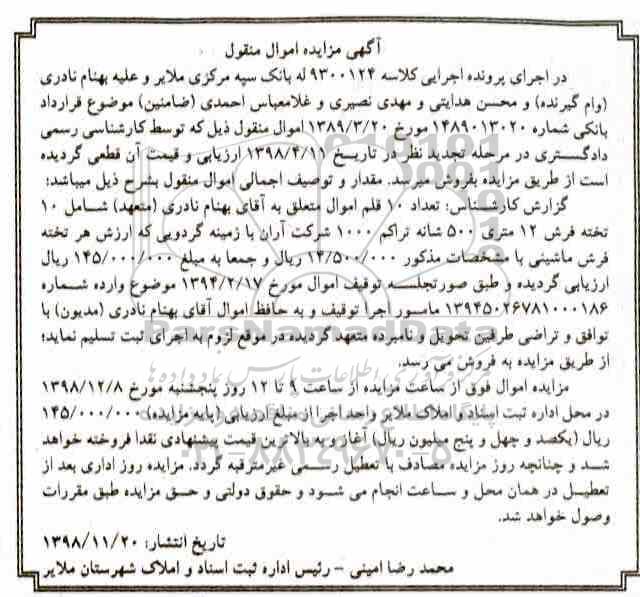 آگهی مزایده اموال منقول
در اجرای پرونده اجرایی کلاسه ۹۳۰۰۱۲۴ له بانک سپه مرکزی ملایر و علیه بهنام نادری
(وام گیرنده) و محسن هدایتی و مهدی نصیری و غلامعباس احمدی (ضامنین) موضوع قرارداد
بانکی شماره ۱۴۸۹۰۱۳۰۲۰ مورخ ۱۳۸۹/۳/۲۰ اموال منقول ذیل که توسط کارشناسی رسمی
دادگستری در مرحله تجدید نظر در تاریخ ۱۳۹۸/۴/۱۱ ارزیابی و قیمت آن قطعی گردیده
است از طریق مزایده بفروش میرسد. مقدار و توصیف اجمالی اموال منقول بشرح ذیل میباشد:
گزارش کارشناس: تعداد ۱۰ قلم اموال متعلق به آقای بهنام نادری (متعهد) شامل ۱۰
تخته فرش ۱۲ متری ۵۰۰ شانه تراکم ۱۰۰۰ شرکت آران با زمینه گردویی که ارزش هر تخته
فرش ماشینی با مشخصات مذکور ۱۴/۵۰۰/۰۰۰ ریال و جمعا به مبلغ ۱۴۵/۰۰۰/۰۰۰ ریال
ارزیابی گردیده و طبق صورتجلسه توقیف اموال مورخ ۱۳۹۴/۲/۱۷ موضوع وارده شماره
۱۳۹۴۵۰۲۶۷۸۱۰۰۰۱۸۶ مامور اجرا توقیف و به حافظ اموال آقای بهنام نادری (مدیون) با
توافق و تراضی طرفین تحویل و نامبرده متعهد گردیده در موقع لزوم به اجرای ثبت تسلیم نماید؛
از طریق مزایده به فروش می رسد.
مزایده اموال فوق از ساعت مزایده از ساعت ۹ تا ۱۲ روز پنجشنبه مورخ ۱۳۹۸/۱۲/۸
در محل اداره ثبت اسناد و املاک ملایر واحد اجرا از مبلغ ارزیابی (پایه مزایده) ۱۴۵/۰۰۰/۰۰۰
ریال (یکصد و چهل و پنج میلیون ریال) آغاز و به بالاترین قیمت پیشنهادی نقدا فروخته خواهد
شد و چنانچه روز مزایده مصادف با تعطیل رسمی غیرمترقبه گردد. مزایده روز اداری بعد از
تعطیل در همان محل و ساعت انجام می شود و حقوق دولتی و حق مزایده طبق مقررات
وصول خواهد شد.
تاریخ انتشار: ۱۳۹۸/۱۱/۲۰
محمد رضا امینی - رئیس اداره ثبت اسناد و املاک شهرستان ملایر
ParsNamadData
۰۲۱-۸۸۳۴۹۶۷۰-۵